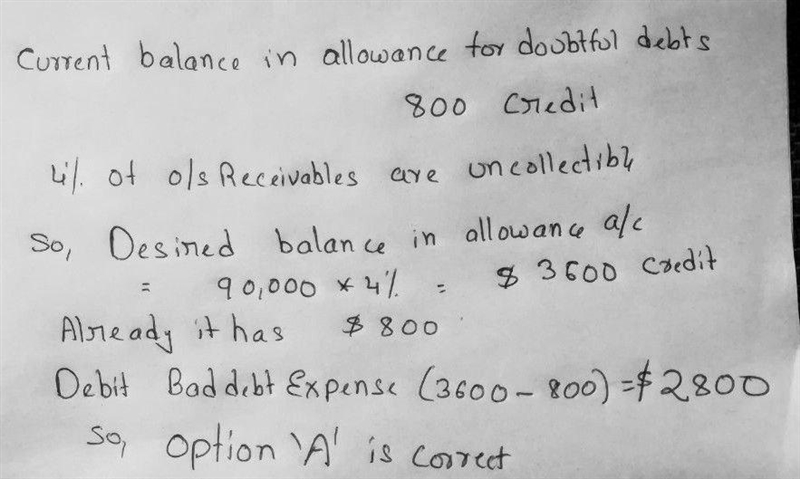 Current balance in allowance for doubtful debts
800 Credit
4% of o/s Receivables are uncollectible
So, Desired balance in allowance a/c
= 90,000 * 4% = $ 3600 Credit
Already it has $ 800
Debit Bad debt Expense (3600 - 800) = $2800
So, Option 'A' is correct